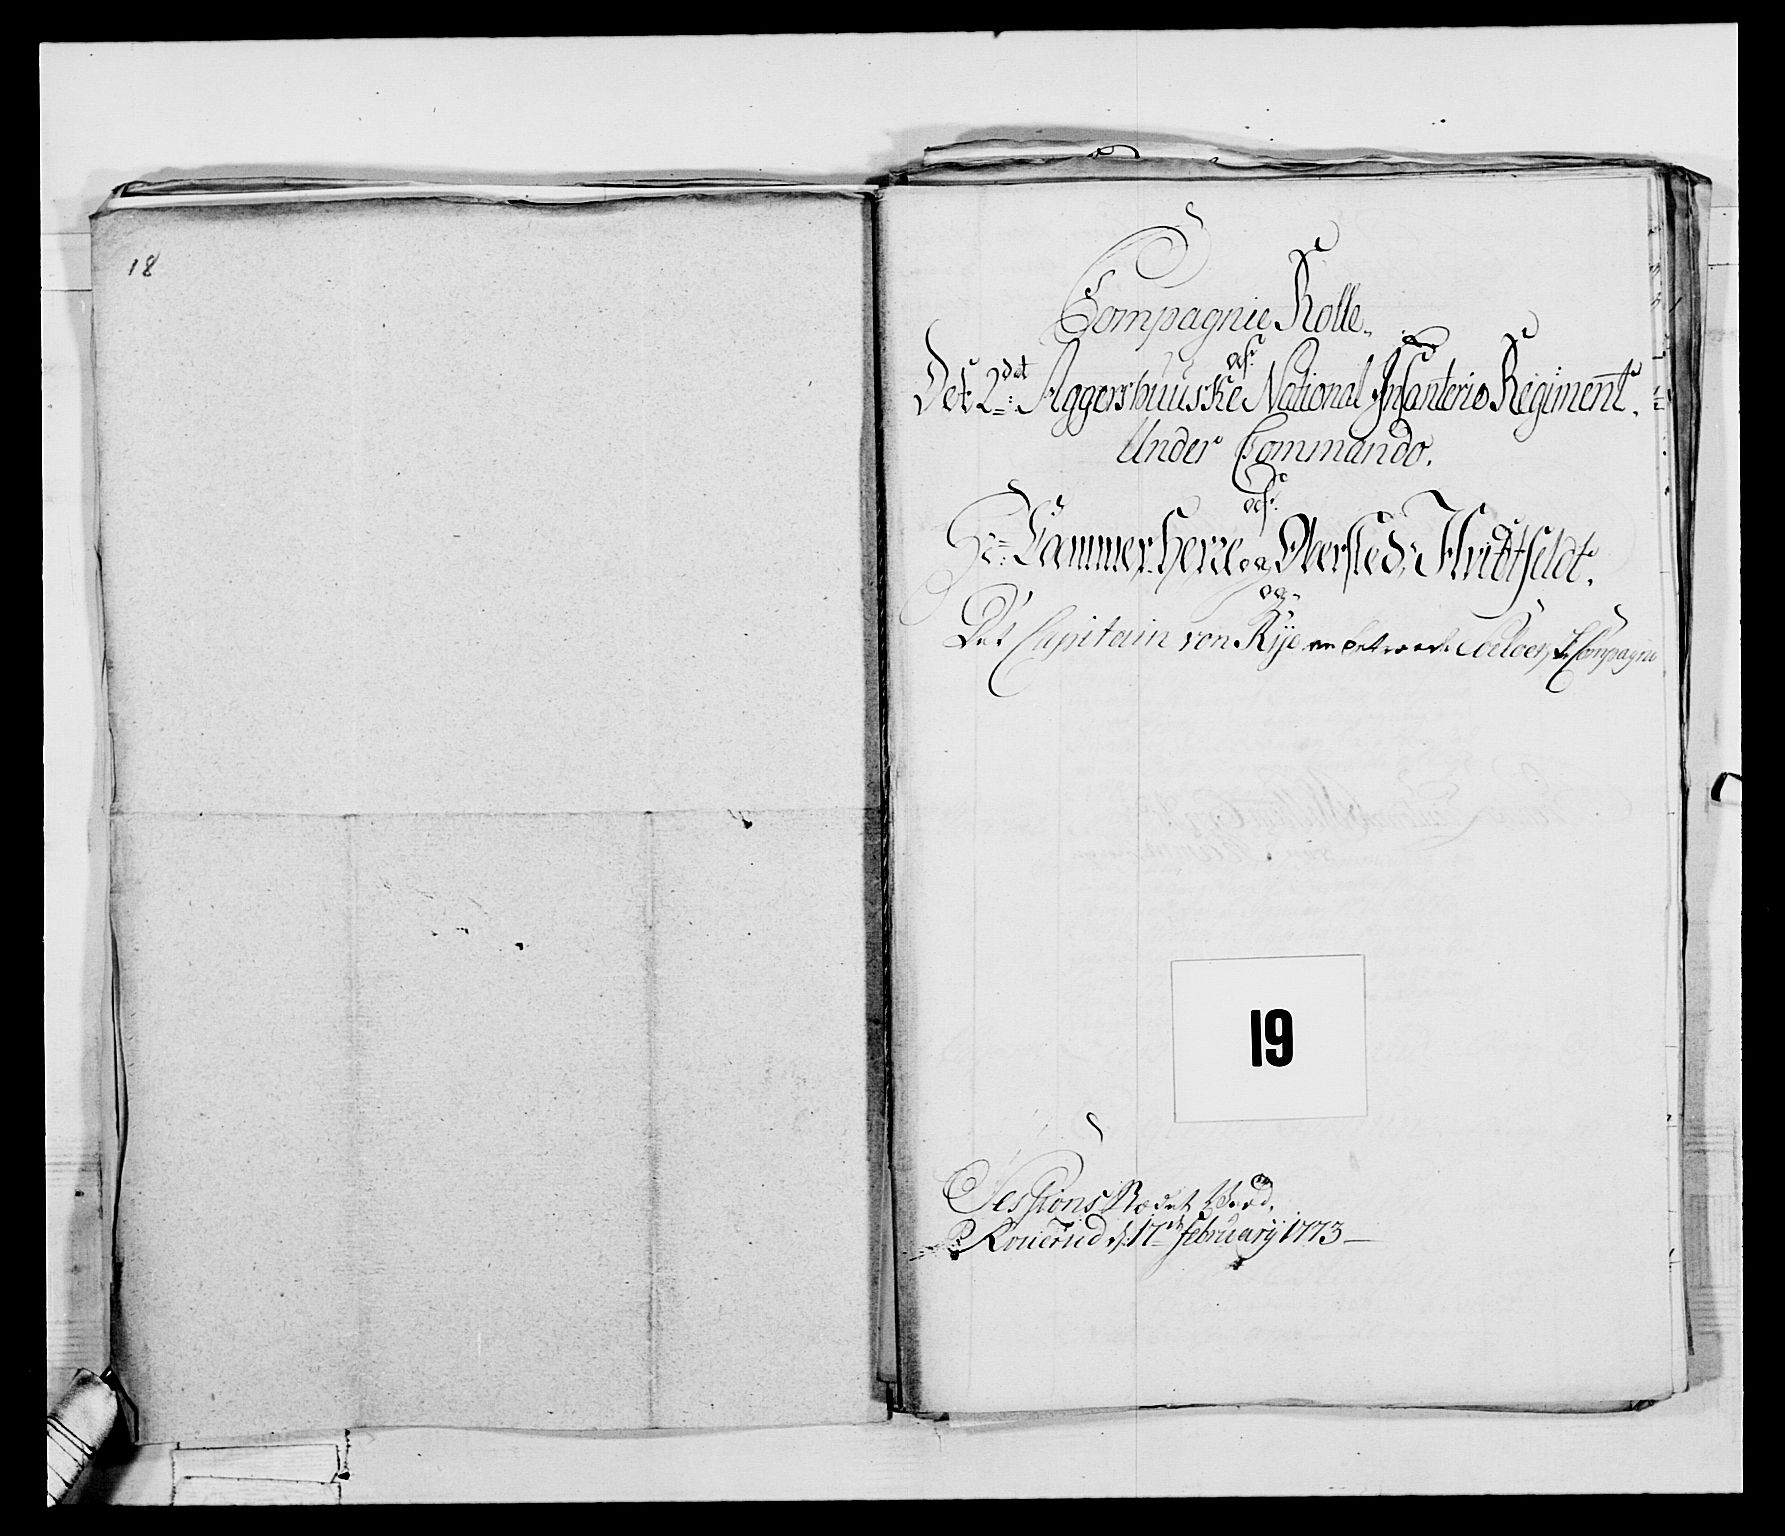 18
Compagnie Rolle.
af.
Det 2det Aggershuuske National Infanterie Regiment.
Under Commando.
af.
Hr: Cammer-Herre og Oberste d' Hvidtfeldt.
og
Det Capitain von Rye anbetroede Compagnie
19
Sessions Holdet Gaard,
Kouerud d: 17de february 1773